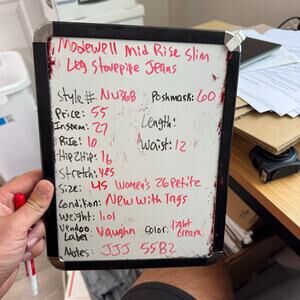 Madewell Mid Rise Slim
Leg Stovepipe Jeans
Style # NU368 Poshmark: 60
Price: 55
Inseam: 27 Length:
Rise: 10 Waist: 12
Hip2Hip: 16
Stretch: yes
Size: US Women's 26 Petite
Condition: New with Tags
Weight: 1.01
Vendoo Label: Vaughn Color: light cream
Notes: JJJ 5582